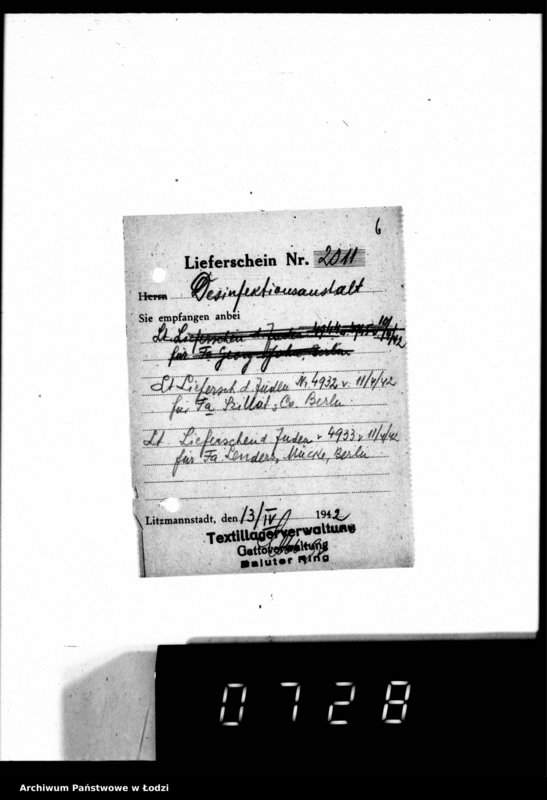 6
Lieferschein Nr. 2011
Herrn Desinfektionsanstalt
Sie empfangen anbei
Lt Lieferschein d. Juden
für Fa Georg Berlin
Lt Liefersch d. Juden Nr 4932 v. 11/4/42
für Fa & Co. Berlin
Lt Lieferschein d Juden 4933 v 11/4/42
für Fa Lenders, Mücke, Berlin
Litzmannstadt, den 13/IV 1942
Textillagerverwaltung
Gettoverwaltung
Baluter Ring
0728
Archiwum Państwowe w Łodzi